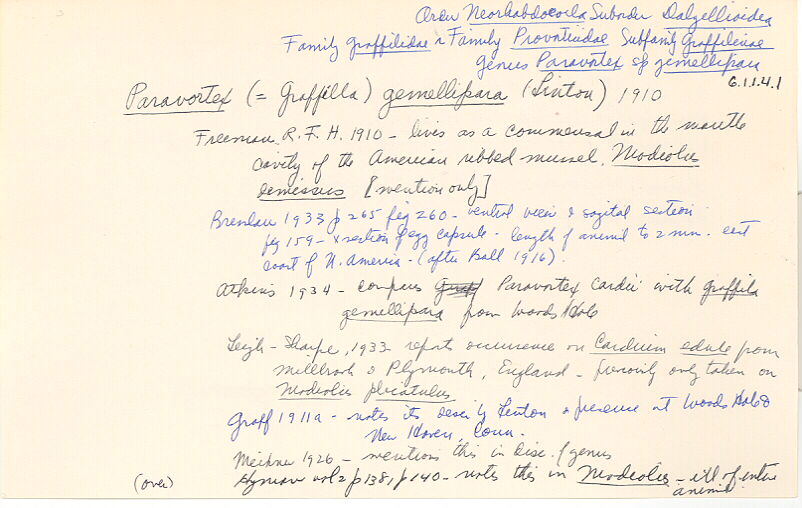 Order Neorhabdocoela Suborder Dalyellioidea
Family Graffilidae & Family Provorticidae Subfamily Graffilinae
Genus Paravortex sp gemellipara
6.1.1.4.1
Paravortex (= Graffilla) gemellipara (Linton) 1910
Freeman R. F. H. 1910 - lives as a commensal in the mantle
cavity of the American ribbed mussel, Modiolus
demissus [mention only]
Breslau 1933 p 265 fig 260 - ventral view & sagital section
fig 159 - x section of egg capsule - length of animal to 2 mm. east
coast of N. America - (after Ball 1916).
Atkins 1934 - compares Paravortex Cardii with graffila
gemellipara from Woods Hole
Leigh-Sharpe, 1933 reports occurrence on Cardium edule from
Millbrook & Plymouth, England - previously only taken on
Modiolus plicatulus
Graff 1911a - notes its descr by Linton & presence at Woods Hole &
New Haven, Conn.
Meixner 1926 - mentions this in disc. of genus
Hyman vol 2 p 138, p 140 - notes this in Modiolus - ill of entire
animal
(over)